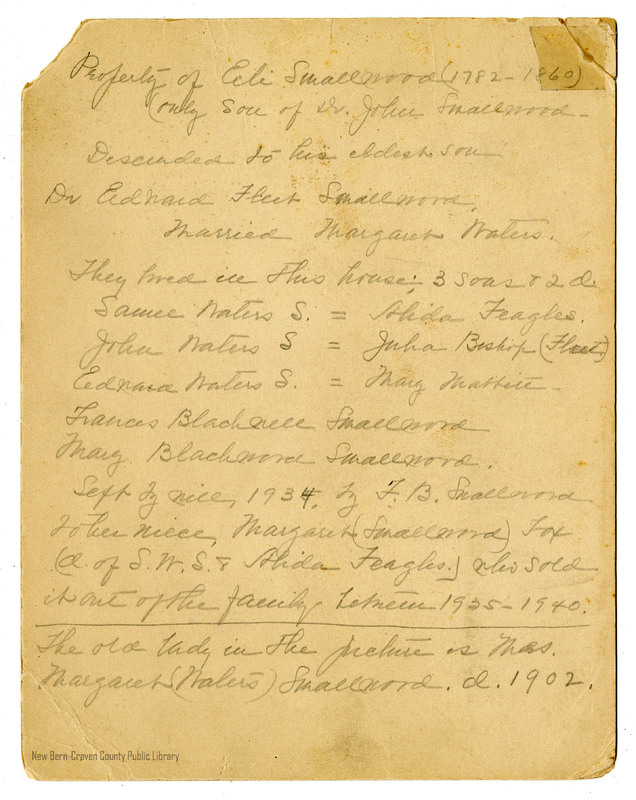 Property of Eli Smallwood (1782-1860)
(only Son of Dr. John Smallwood -
Descended to his eldest son
Dr. Edward Fleet Smallwood,
Married Margaret Waters.
They lived in this house; 3 sons & 2 d.
Samue Waters S. = Alida Feagles.
John Waters S = Julia Bishop (Fleet)
Edward Waters S. = Mary
Frances Blackwell Smallwood
Mary Blackwood Smallwood.
Left by will, 1934, by F. B. Smallwood
to her niece, Margaret (Smallwood) Fox
(d. of S. W. S. & Alida Feagles.) who sold
it out of the family between 1935-1940.
The old lady in the picture is Mrs.
Margaret (Waters) Smallwood. d. 1902.
New Bern-Craven County Public Library